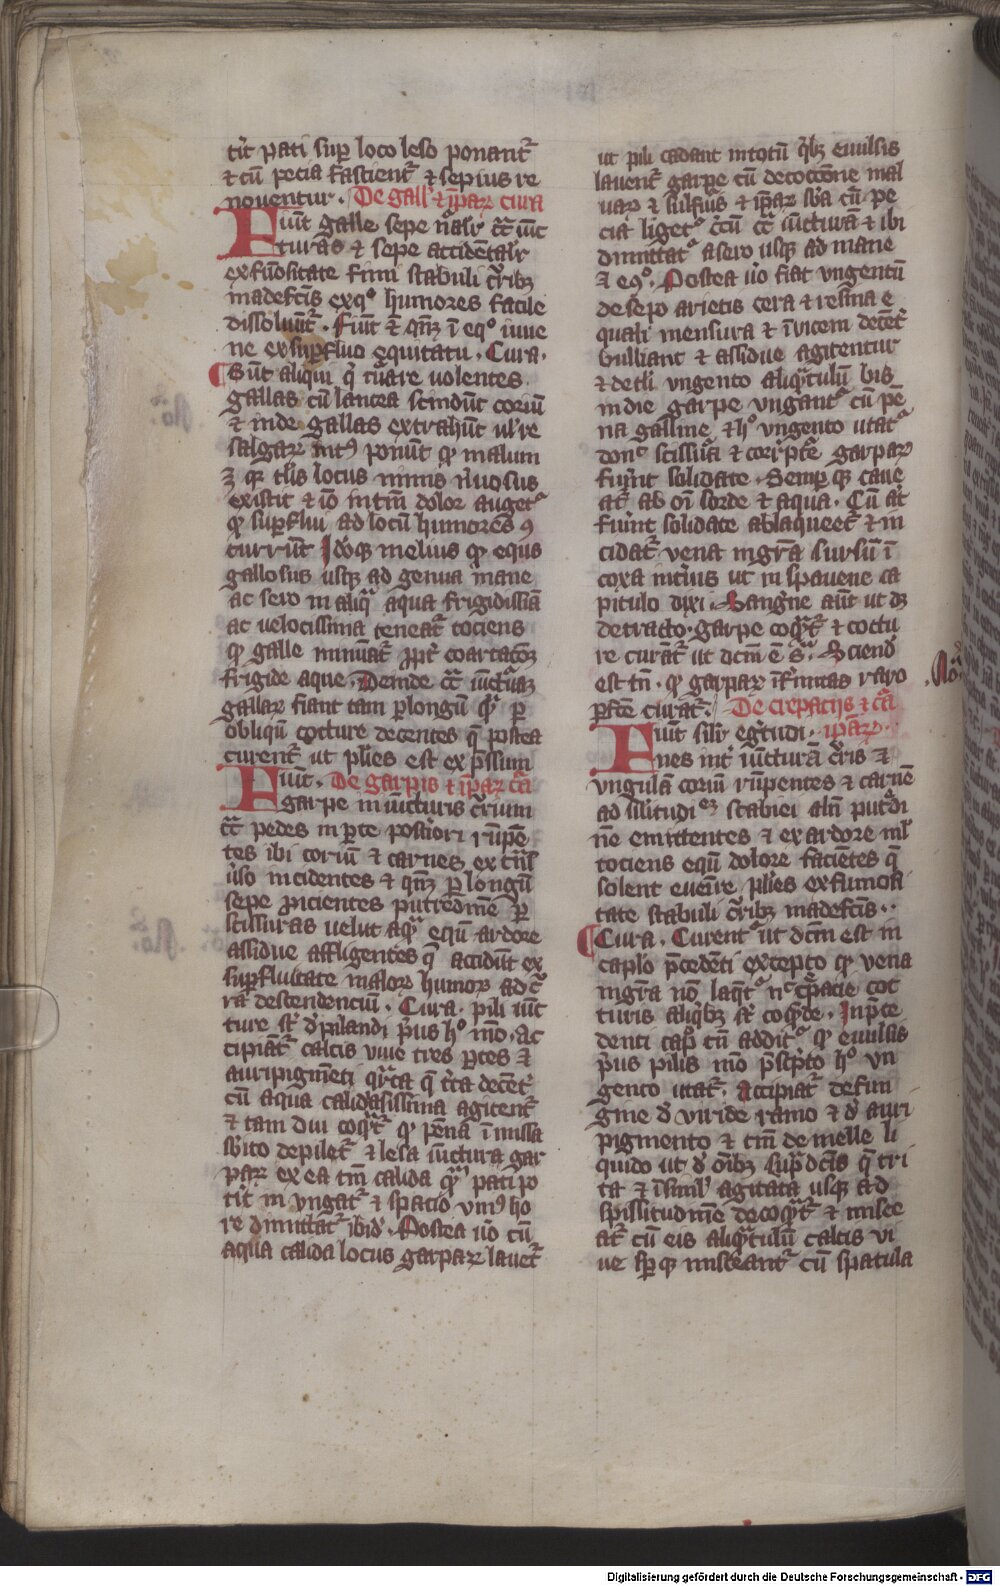 tit̄ pati sup̱ loco leso ponant᷑
⁊ cū pecia fascient᷑ ⁊ sepius re
nouentur. De gall᷑ ⁊ ip̄aꝝ cura
Fiūt galle sepe nal̄r c̄c̄ iūc
turas ⁊ sepe accidētalr̄
ex fūositate fimi stabuli cͥribꝫ
madefc̄is ex qͦ humores facile
dissoluūt᷑. Fiūt ⁊ qn̄ꝫ ī eqͦ iuue
ne ex suꝑfluo eqͥtatu. Cura.
Sūt aliqui qͥ cūare uolentes
gallas cū lancea scindūt coriū
⁊ inde gallas extrahūt ul̓ re
salgaꝝ intꝰ ponūt qͩ malum
ꝫ qꝫ tl̓is locus nimis nͣuosus
existit ⁊ iō intm̄ dolor auget᷑
qͩ suꝑflui ad locū humores ꝯ
currūt Idoqꝫ melius qͩ equs
gallosus usqꝫ ad genua mane
ac sero in aliqͣ aqua frigidissīa
ac uelocissima teneat᷑ tociens
qͩ galle minuāt᷑ ꝓpt̄ coartac̄oꝫ
frigide aque. Deinde c̄c̄ iūctͣaꝫ
gallaꝝ fiant tam ꝑ longū qͣ ꝑ
obliqū cocture decentes q̄ postea
curent᷑ ut pl̓ies est exp̄ssum
Fiūt. De garpis ⁊ ip̄aꝝ cͣa
garpe in iūcturis cͥrium
c̄c̄ pedes in ꝑte post̓iori rūpē
tes ibi coriū ⁊ carnes, ex tͣns
ūso incidentes ⁊ qn̄ꝫ ꝑ longū
sepe ꝓicientes putredinē ꝑ
scissuras uelut aqͣ equū ardore
assidue affligentes q̄ accidūt ex
suꝑfluitate maloꝝ humoꝝ ad cͥ
ra descendenciū. Cura. pili iūc
ture st̄ dꝑilandi pͥus hͦ mō. Ac
cipiat᷑ calcis uiue tres ꝑtes ⁊
auripigm̄eti qͣrta q̄ tͥta decēt᷑
cū aqua calidasissima agitent᷑
⁊ tam diu coqͣt᷑ qͩ pēna ī missa
sbito depilet᷑ ⁊ lesa iūctura gar
paꝝ ex ea tm̄ calida qͣꝫ pati po
tit̄ in ungat᷑ ⁊ spacio uniꝰ ho
re dimittat᷑ ibid̓. Postea ūo cū
aqua calida locus garpaꝝ lauet᷑
ut pili cadant in totū qͥbꝫ euulsis
lauent᷑ garpe cū decoccione mal
uaꝝ ⁊ sulfuis ⁊ ip̄aꝝ sb̓a cū pe
cia liget᷑ cͥcū c̄c̄ iūcturā ⁊ ibi
dimittat᷑ a sero usqꝫ ad mane
⁊ eqͦ. Postea ūo fiat ungentū
de sepo arietis cera ⁊ resina e
quali mensura ⁊ īuicem decēt᷑
bulliant ⁊ assidue agitentur
⁊ de tl̓i ungento aliqͣtulū bis
in die garpe ungant᷑ cū pe
na galline, ⁊ hͦ ungento utat᷑
donᶜ scissuͣa ⁊ corͬpte garpaꝝ
fuͣint solidate. Semꝑ qꝫ caue
at᷑ ab oī sorde ⁊ aqua. Cū at̄
fuīnt solidate ablaqueet᷑ ⁊ in
cidat᷑ vena ingrͣa sursū ī
coxa intͥius ut in spauene ca
pitulo dixi. Sangͥne aūt ut dꝫ
detracto. garpe coqͣt᷑ ⁊ coctu
re curat᷑ ut dcm̄ ē sͣ. Sciend̓
est tn̄. qͩ garpaꝝ īfirmitas raro
ꝑfc̄e curat᷑. De crepaciis ⁊ cͣa
Fiūt silr̄ egͥtudi. ip̄aꝝ.
nes int̓ iūcturā cͥris ⁊
ungulā coriū rūpentes ⁊ carnē
ad silitudiēꝫ scabiei aln̄ putͥdi
nē emittentes ⁊ ex ardore ml̓
tociens equū dolore faciētes q̄
solent euenͥre pl̓ies ex fumosi
tate stabuli cͥribꝫ madefc̄is..
Cura. Curent᷑ ut dcm̄ est in
caplo p̄cedēti excepto qͩ vena
ingrͣa nō laqͣt᷑ nᶜ cͬpacie coc
turis aliqͥbꝫ st̄ coqͣnde. In p̄ce
denti capͦ tn̄ addit᷑ qͩ euulsis
pͥus pilis mō pͥscpͥto hͦ un
gento utat᷑. Accipiat᷑ de fuli
gine d̓ uiride ramo ⁊ d̓ auri
pigmento ⁊ tm̄ de melle li
quido ut d̓ oībꝫ supͣdcīs q̄ tri
ta ⁊ īsimul̓ agitata usqꝫ ad
spissitudinē decoqͣt᷑ ⁊ misce
at᷑ cū eis aliqͣtulū calcis ui
ue sp̱ qꝫ misceant᷑ cū spatula
No᷑
Digitalisierung gefördert durch die Deutsche Forschungsgemeinschaft - DFG